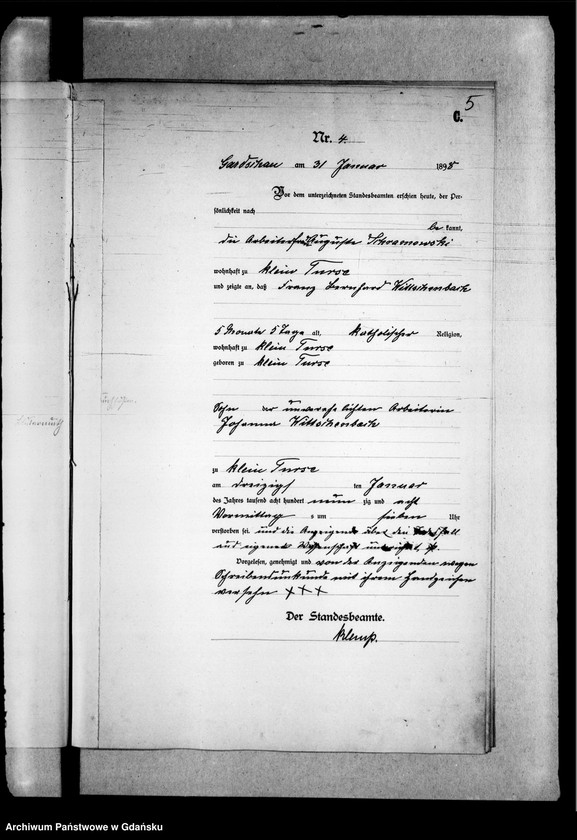 5
C.
Nr. 4.
Gardschau am 31 Januar 1898
Vor dem unterzeichneten Standesbeamten erschien heute, der Per-
sönlichkeit nach
be kannt,
die Arbeiterfrau Auguste Schramowski
wohnhaft zu klein Turse
und zeigte an, daß Franz Bernhard Wittschenbach
5 Monate 5 Tage alt, katholischer Religion,
wohnhaft zu klein Turse
geboren zu klein Turse
Sohn der unverehelichten Arbeiterin
Johanna Wittschenbach
zu klein Turse
am dreizigst ten Januar
des Jahres tausend acht hundert neun zig und acht
Vormittag s um sieben Uhr
verstorben sei und die Anzeigende über den Todesfall
aus eigener Wissenschaft unterrichtet ist.
Vorgelesen, genehmigt und von der Anzeigenden wegen
Schreibensunkunde mit ihrem Handzeichen
versehn + + +
Der Standesbeamte.
Klemp.
Archiwum Państwowe w Gdańsku